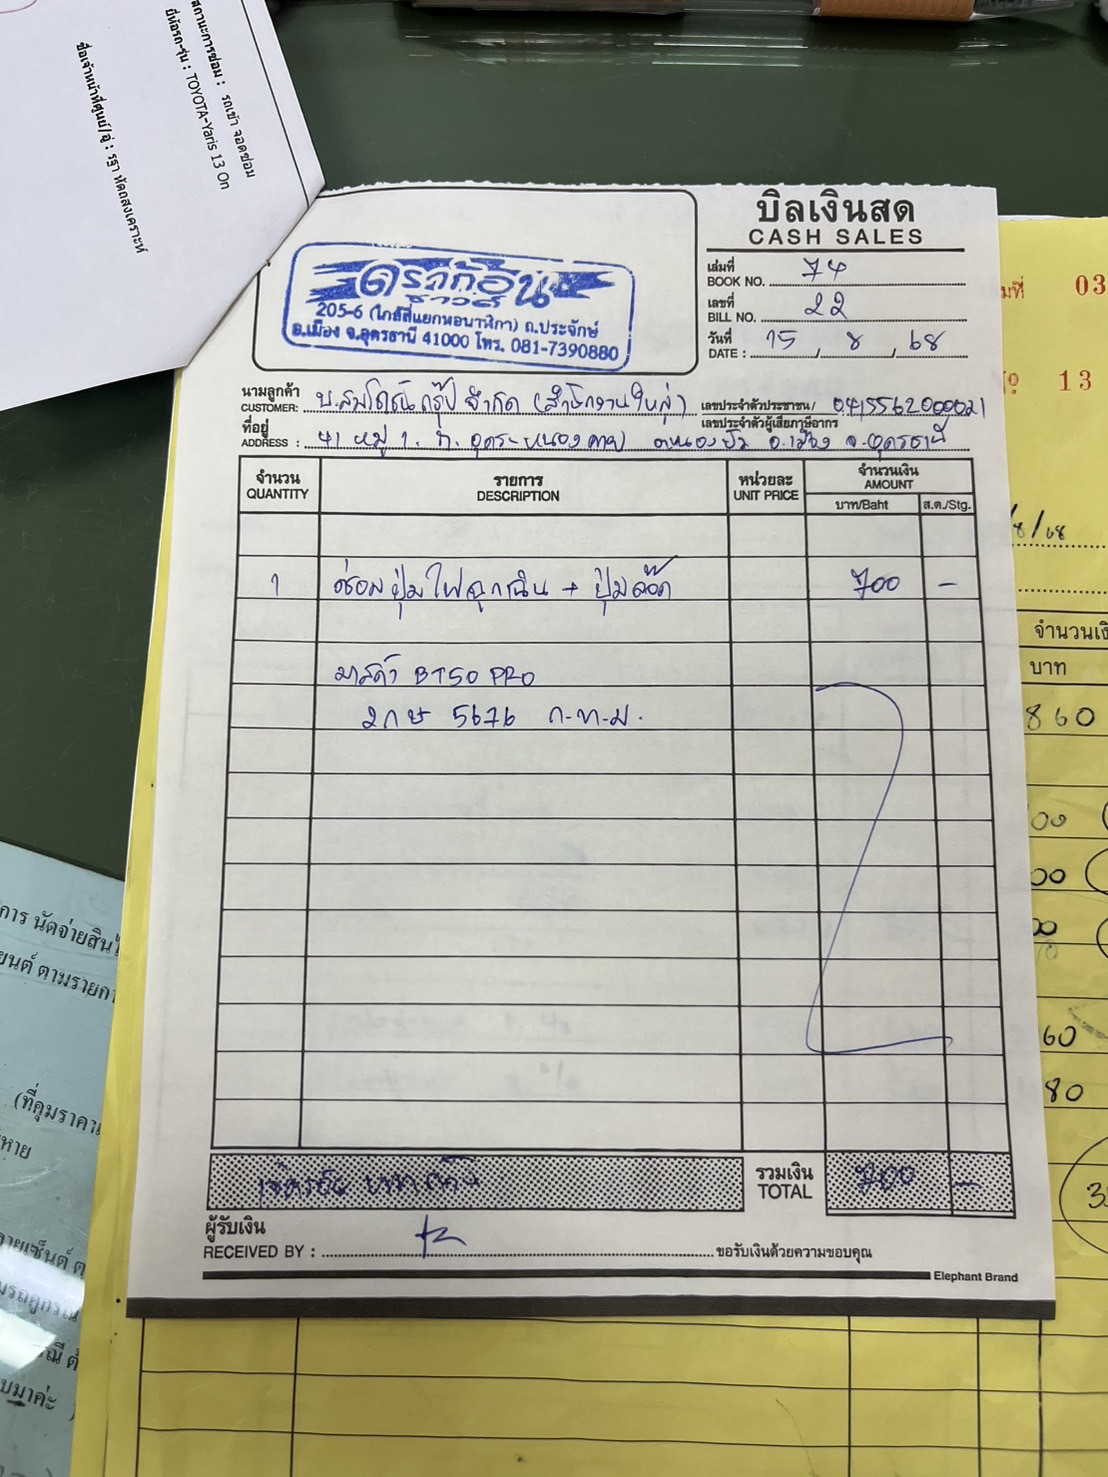 สถานะการซ่อม : รถเข้า จอดซ่อม
ยี่ห้อรถ-รุ่น : TOYOTA-Yaris 13 On
ชื่อเจ้าหน้าที่ศูนย์/อู่ : รฐา หัตถสงเคราะห์
บิลเงินสด
CASH SALES
ดราก้อน
ซาวด์
205-6 (ใกล้สี่แยกหอนาฬิกา) ถ.ประจักษ์
อ.เมือง จ.อุดรธานี 41000 โทร. 081-7390880
เล่มที่
BOOK NO. 74
เลขที่
BILL NO. 22
วันที่
DATE : 15 / 8 / 68
นามลูกค้า
CUSTOMER: บ.สมโตณ์กรุ๊ป จำกัด (สำนักงานใหญ่) เลขประจำตัวประชาชน/ 0415562000021
เลขประจำตัวผู้เสียภาษีอากร
ที่อยู่
ADDRESS : 41 หมู่ 1 ถ. อุดร-หนองคาย ต.หนองบัว อ.เมือง จ.อุดรธานี
จำนวน รายการ หน่วยละ จำนวนเงิน
QUANTITY DESCRIPTION UNIT PRICE AMOUNT
บาท/Baht ส.ต./Stg.
1 ซ่อมปุ่มไฟฉุกเฉิน + ปุ่มล๊อก 700 -
มาสด้า BT50 PRO
2กษ 5676 ก.ท.ม.
เจ็ดร้อย บาทถ้วน
รวมเงิน
TOTAL 700 -
ผู้รับเงิน
RECEIVED BY : ขอรับเงินด้วยความขอบคุณ
Elephant Brand
มที่ 03
Nº 13
/8/68
จำนวนเงิ
บาท
860
00
00
00
60
80
การ นัดจ่ายสินไ
ยนต์ ตามรายกา
(ที่คุมราคา
หาย
ายเซ็นต์ ต
บมาค่ะ )